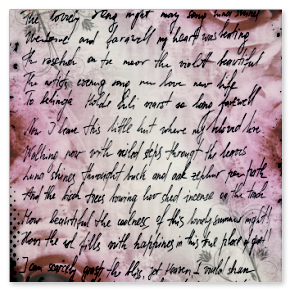 The lovely song night may song
Welcome! and farewell my heart was beating
the rosebush on the moor the violet beautiful
The artist evening song new love new life
To Belinda Holde Lili worst so long farewell
Now I leave this little hut where my beloved live
Walking now with veiled steps through the leaves
Luna shines through bush and oak zephyr path
And the birch trees bowing low shed incense on the track
How beautiful the coolness of this lovely summer night!
does the soul fills with happiness in this true place of quiet!
I can scarcely grasp the bliss, yet Heaven, I would shun